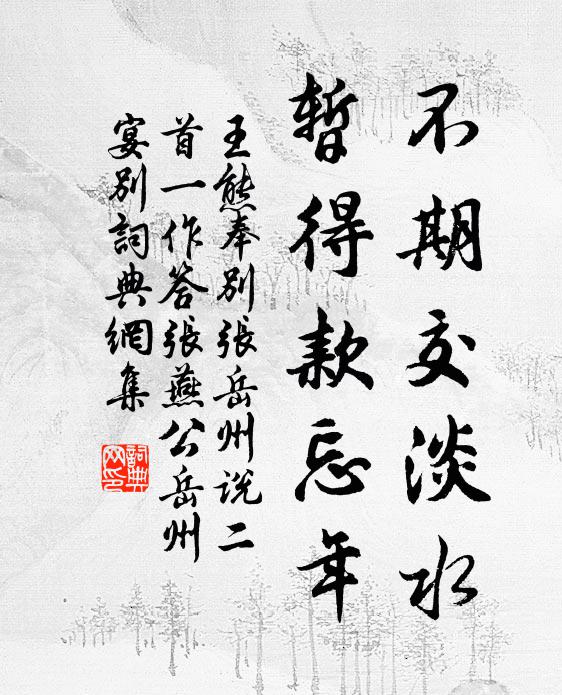 不期交淡水
暫得款忘年
王熊奉别張岳州说二
首一作答張燕公岳州
宴别詞典網集
詞典
网印